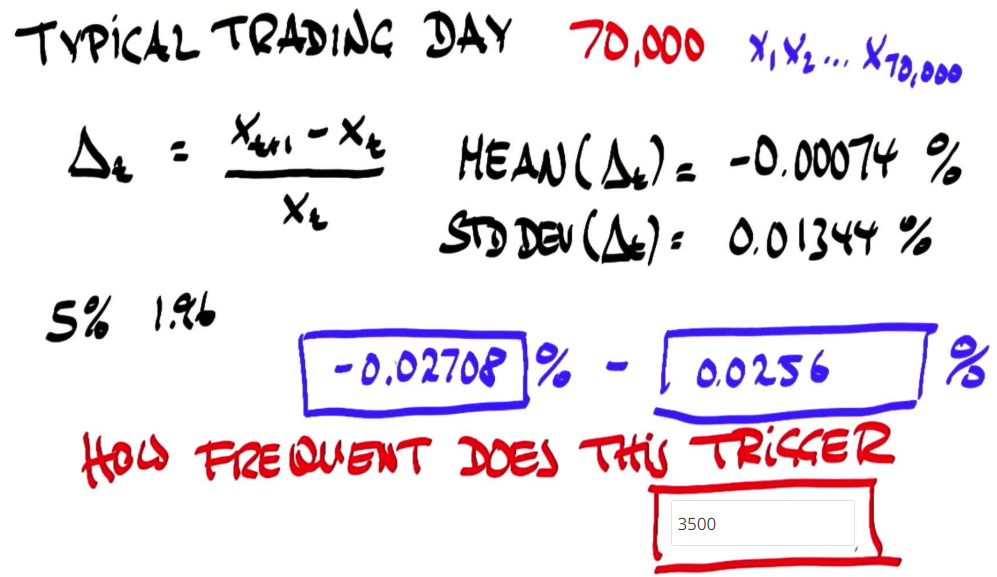 TYPICAL TRADING DAY 70,000 x₁ x₂ ... x₇₀,₀₀₀
Δₜ = (xₜ₊₁ - xₜ) / xₜ
MEAN(Δₜ) = -0.00074 %
STD DEV(Δₜ) = 0.01344 %
5% 1.96
-0.02708 % - 0.0256 %
HOW FREQUENT DOES THIS TRIGGER
3500